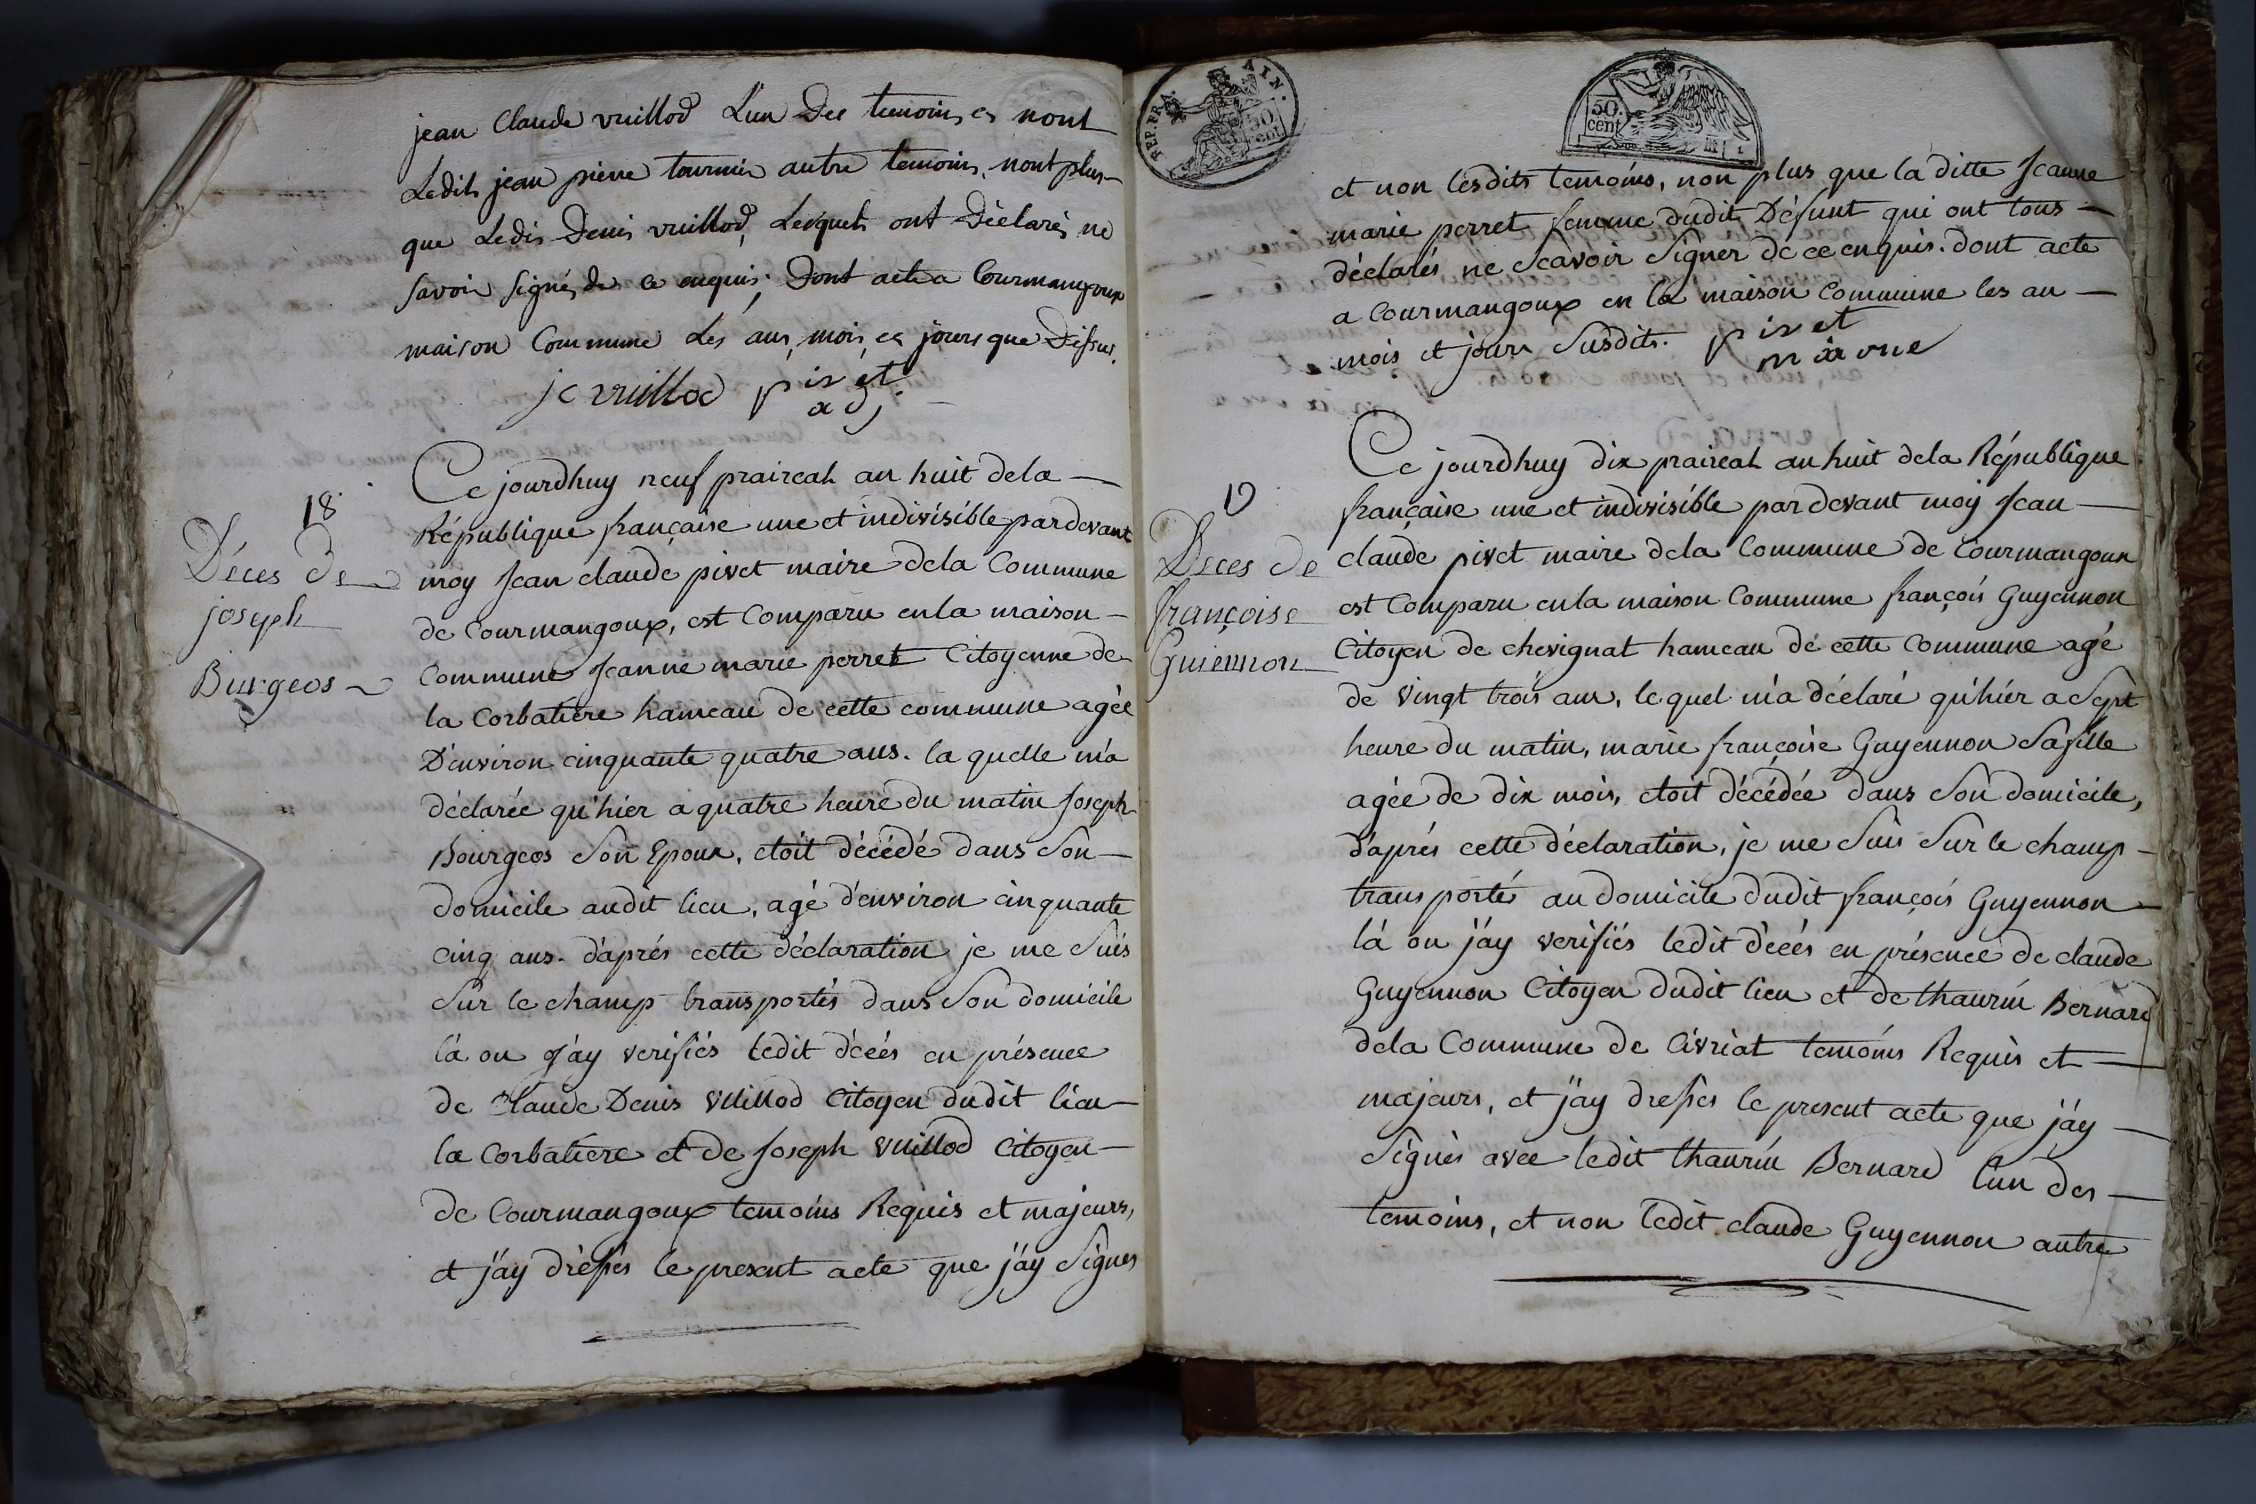 jean Claude vuillod L'un Des temoins, et nont
Ledit jean pierre tournier autre temoins, nont plus
que Ledit Denis vuillod, Lesquels ont Déclarés ne
savoir signé, de ce enquis; Dont acte a Courmangoux
maison Commune Les ans, mois, et jours que Dessus.
jc vuillod pivet
adj.
18.
Déces de
joseph
Burgeos
Ce jourdhuy neuf praireal an huit dela
République française une et indivisible pardevant
moy Jean claude pivet maire dela Commune
de Courmangoux, est Comparu en la maison
Commune Jeanne marie perret Citoyenne de
la Corbatière hameau de cette commune agée
D'environ cinquante quatre ans. la quelle m'a
déclarée qu'hier a quatre heure du matin Joseph
Bourgeos son Epoux, etoit décédé dans son
domicile audit lieu, agé d'environ cinquante
cinq ans. d'aprés cette déclaration je me suis
sur le champ transportés dans son domicile
là ou j'ay verifiés ledit décés en présence
de Claude Denis Vuillod Citoyen dudit lieu
la Corbatiére et de Joseph Vuillod Citoyen
de Courmangoux temoins Requis et majeurs,
et j'ay drésses le present acte que j'ay signes
REP. FRA. AIN.
50
cent
50.
cent
et non lesdits temoins, non plus que la ditte Jeanne
marie perret femme dudit Défunt qui ont tous
déclarés ne scavoir signer de ce enquis. dont acte
a Courmangoux en la maison Commune les an
mois et jours susdits. pivet
maire
19
Deces de
françoise
Guiennon
Ce jourdhuy dix praireal an huit dela République
française une et indivisible par devant moy Jean
claude pivet maire dela Commune de Courmangoux
est Comparu en la maison Commune françois Guyennon
Citoyen de chevignat hameau de cette commune agé
de vingt trois ans, le quel m'a déclaré qu'hiér a sept
heure du matin, marie françoise Guyennon sa fille
agée de dix mois, etoit décédée dans son domicile,
d'aprés cette déclaration, je me suis sur le champ
transportés au domicile dudit françois Guyennon
là ou j'ay verifiés ledit décés en présence de claude
Guyennon Citoyen dudit lieu et de thaurin Bernard
dela Commune de Civriat temoins Requis et
majeurs, et j'ay dresses le present acte que j'ay
signés avec ledit thaurin Bernard l'un des
temoins, et non ledit claude Guyennon autre